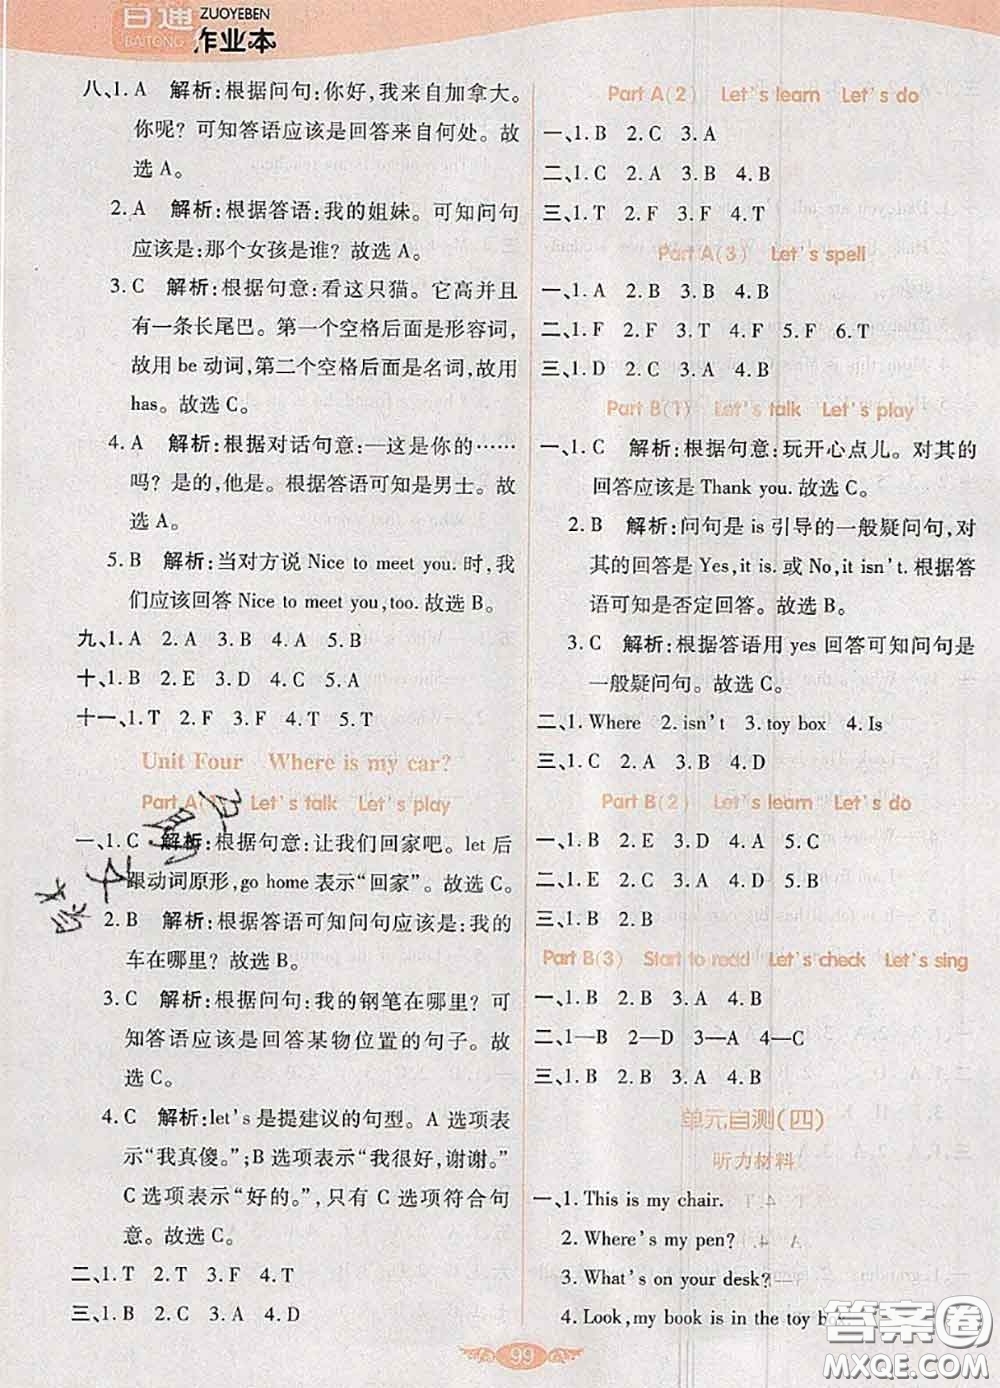 百通
BAITONG
ZUOYEBEN
作业本
八、1. A 解析:根据问句:你好,我来自加拿大。
你呢? 可知答语应该是回答来自何处。故
选 A。
2. A 解析:根据答语:我的姐妹。可知问句
应该是:那个女孩是谁? 故选 A。
3. C 解析:根据句意:看这只猫。它高并且
有一条长尾巴。第一个空格后面是形容词,
故用 be 动词,第二个空格后面是名词,故用
has。故选 C。
4. A 解析:根据对话句意:—这是你的……
吗? 是的,他是。根据答语可知是男士。故
选 A。
5. B 解析:当对方说 Nice to meet you. 时,我
们应该回答 Nice to meet you,too. 故选 B。
九、1. A 2. A 3. B 4. A 5. B
十、1. B 2. E 3. D 4. C 5. A
十一、1. T 2. F 3. F 4. T 5. T
Unit Four Where is my car?
Part A(1) Let's talk Let's play
一、1. C 解析:根据句意:让我们回家吧。let 后
跟动词原形,go home 表示“回家”。故选 C。
2. B 解析:根据答语可知问句应该是:我的
车在哪里? 故选 B。
3. C 解析:根据问句:我的钢笔在哪里? 可
知答语应该是回答某物位置的句子。故
选 C。
4. C 解析:let's 是提建议的句型。A 选项表
示“我真傻。”;B 选项表示“我很好,谢谢。”
C 选项表示“好的。”,只有 C 选项符合句
意。故选 C。
二、1. T 2. T 3. F 4. T
三、1. B 2. C 3. A 4. D
Part A(2) Let's learn Let's do
一、1. B 2. C 3. A
二、1. C 2. A 3. B 4. B
三、1. T 2. F 3. F 4. T
Part A(3) Let's spell
一、1. A 2. B 3. B 4. A
二、1. F 2. F 3. T 4. F 5. F 6. T
三、1. D 2. C 3. A 4. B
Part B(1) Let's talk Let's play
一、1. C 解析:根据句意:玩开心点儿。对其
的回答应该是 Thank you. 故选 C。
2. B 解析:问句是 is 引导的一般疑问句,对
其的回答是 Yes,it is. 或 No,it isn't. 根据答
语可知是否定回答。故选 B。
3. C 解析:根据答语用 yes 回答可知问句是
一般疑问句。故选 C。
二、1. Where 2. isn't 3. toy box 4. Is
三、1. C 2. A 3. B 4. D
Part B(2) Let's learn Let's do
一、1. B 2. E 3. D 4. A 5. C
二、1. E 2. C 3. D 4. B 5. A
三、1. B 2. B
Part B(3) Start to read Let's check Let's sing
一、1. B 2. B 3. A 4. B
二、1—B 2—D 3—A 4—C
三、1. B 2. B 3. A 4. B
单元自测(四)
听力材料
一、1. This is my chair.
2. Where's my pen?
3. What's on your desk?
4. Look,my book is in the toy
99
答案圈
MXQE.COM